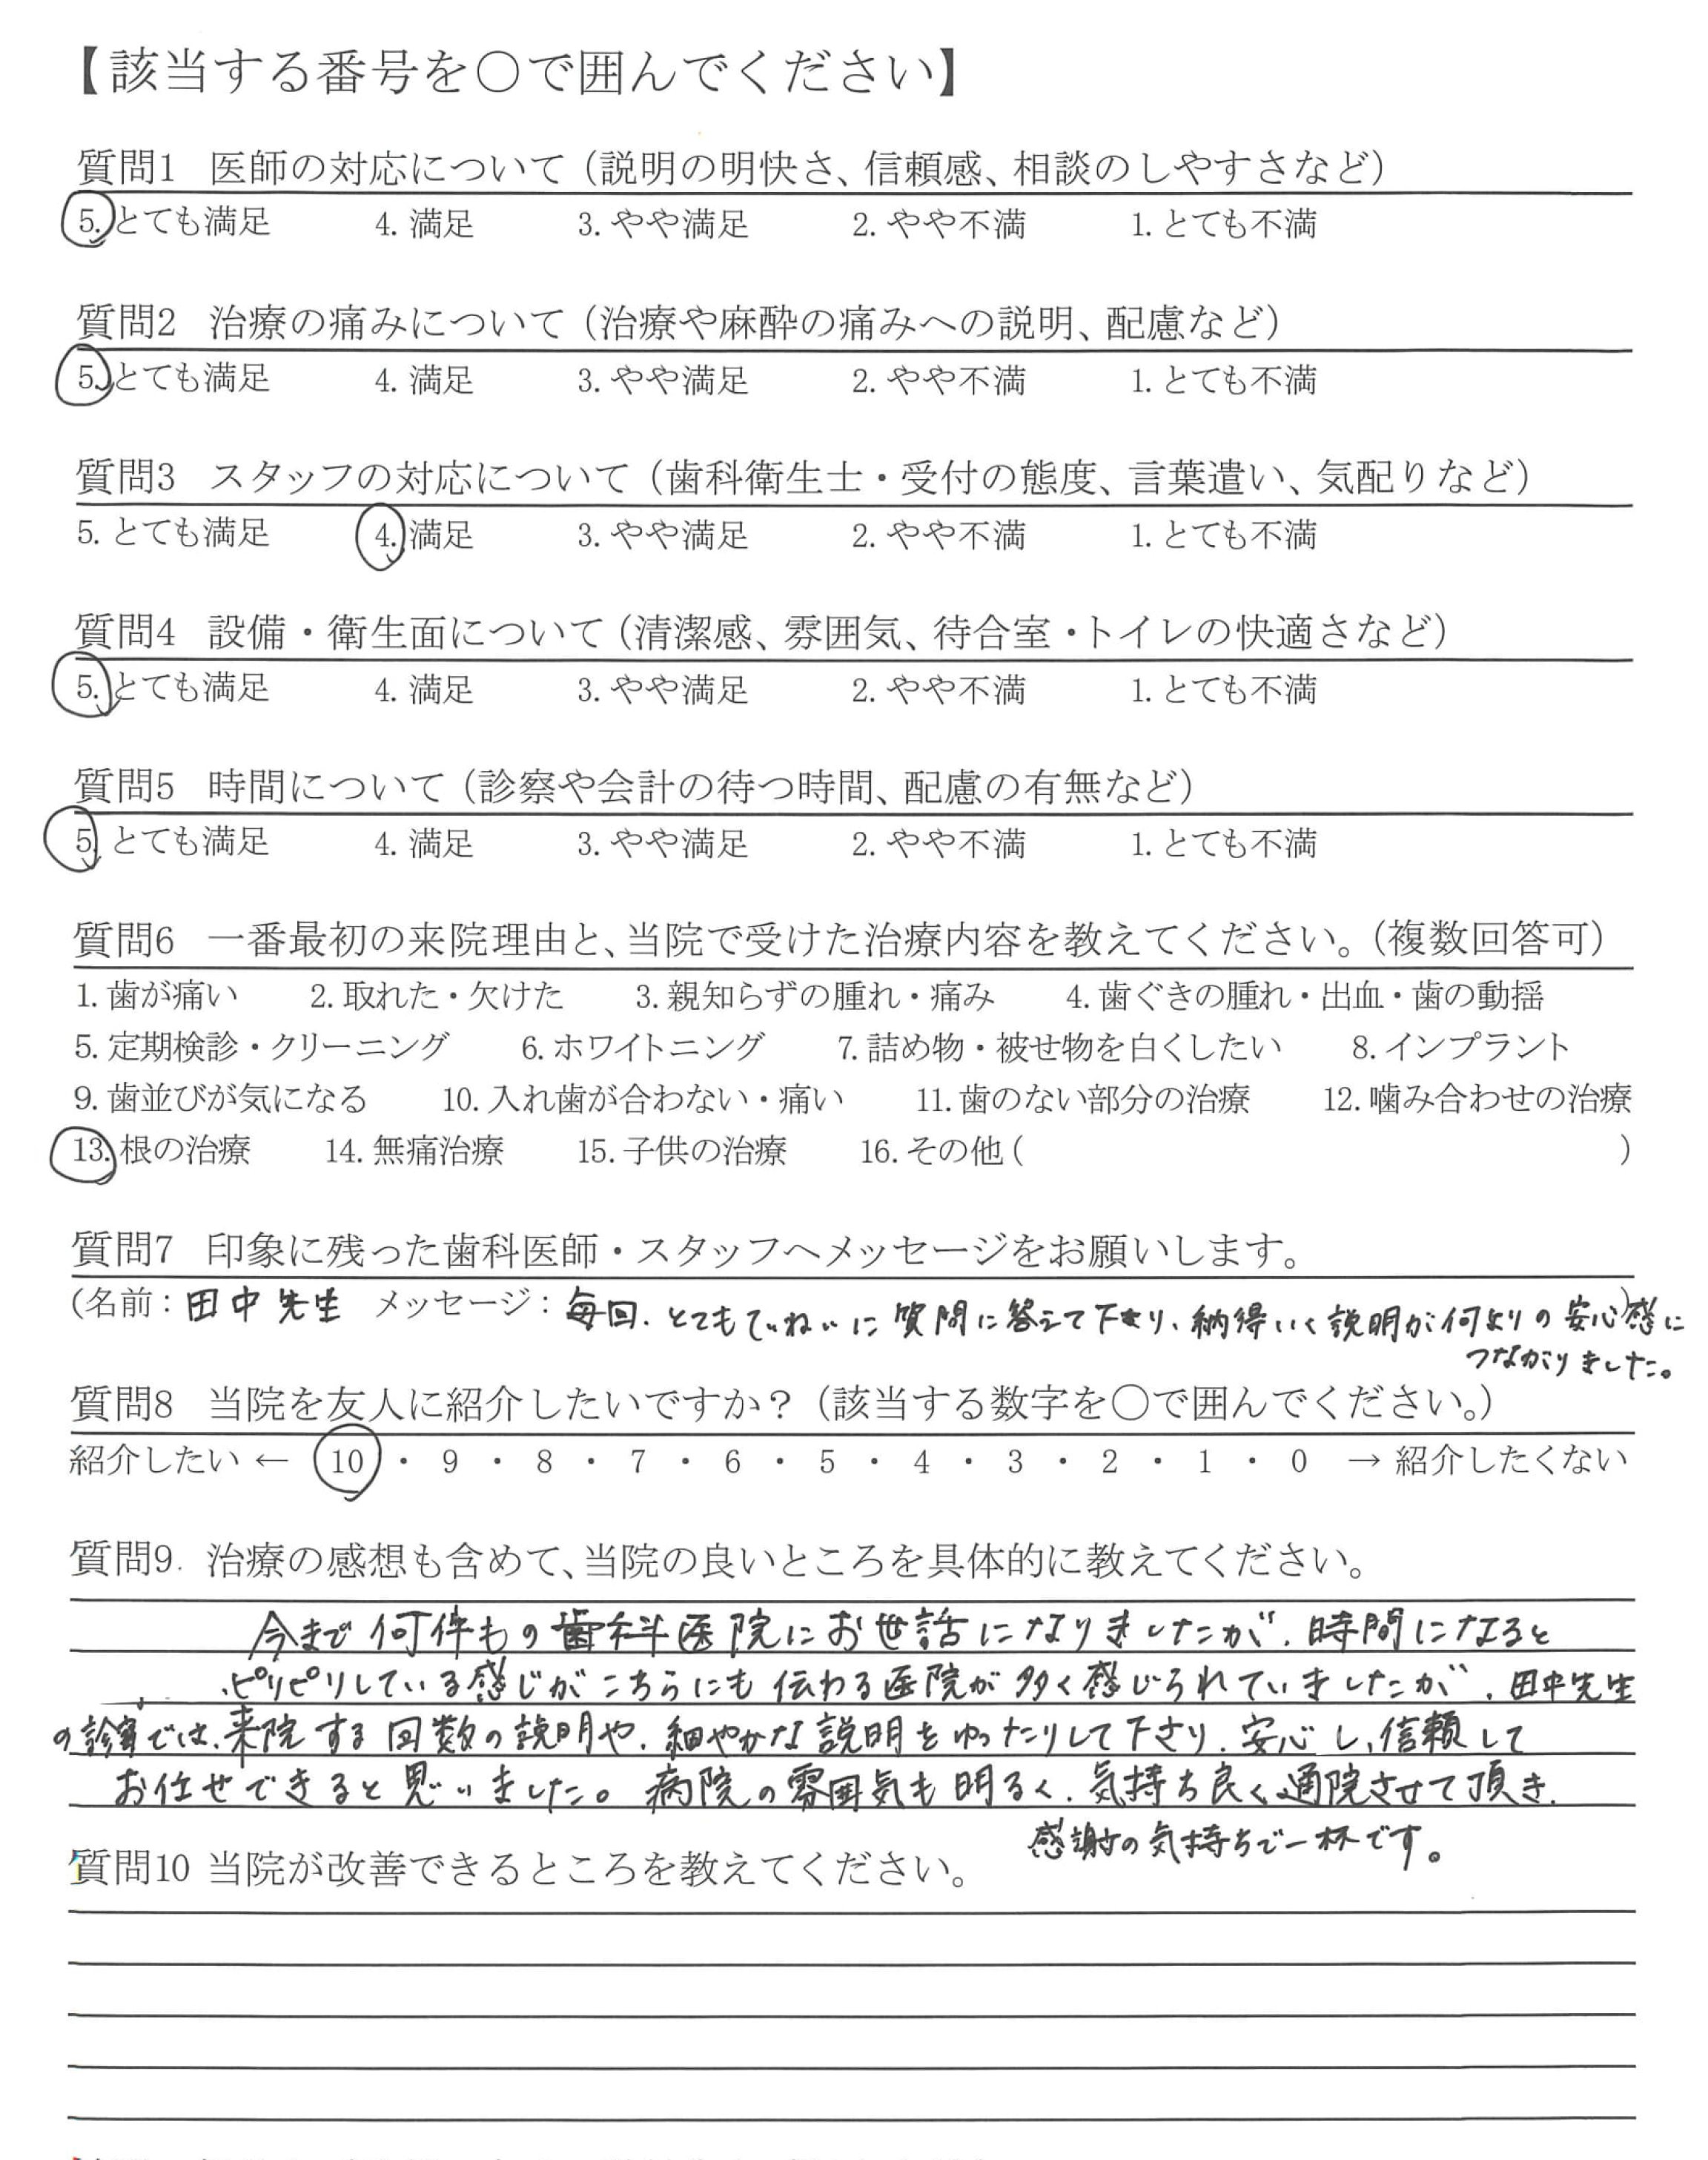 【該当する番号を○で囲んでください】
質問1 医師の対応について（説明の明快さ、信頼感、相談のしやすさなど）
5. とても満足 4. 満足 3. やや満足 2. やや不満 1. とても不満
質問2 治療の痛みについて（治療や麻酔の痛みへの説明、配慮など）
5. とても満足 4. 満足 3. やや満足 2. やや不満 1. とても不満
質問3 スタッフの対応について（歯科衛生士・受付の態度、言葉遣い、気配りなど）
5. とても満足 4. 満足 3. やや満足 2. やや不満 1. とても不満
質問4 設備・衛生面について（清潔感、雰囲気、待合室・トイレの快適さなど）
5. とても満足 4. 満足 3. やや満足 2. やや不満 1. とても不満
質問5 時間について（診察や会計の待つ時間、配慮の有無など）
5. とても満足 4. 満足 3. やや満足 2. やや不満 1. とても不満
質問6 一番最初の来院理由と、当院で受けた治療内容を教えてください。（複数回答可）
1. 歯が痛い 2. 取れた・欠けた 3. 親知らずの腫れ・痛み 4. 歯ぐきの腫れ・出血・歯の動揺
5. 定期検診・クリーニング 6. ホワイトニング 7. 詰め物・被せ物を白くしたい 8. インプラント
9. 歯並びが気になる 10. 入れ歯が合わない・痛い 11. 歯のない部分の治療 12. 噛み合わせの治療
13. 根の治療 14. 無痛治療 15. 子供の治療 16. その他（ ）
質問7 印象に残った歯科医師・スタッフへメッセージをお願いします。
（名前：田中先生 メッセージ：毎回、とてもていねいに質問に答えて下さり、納得いく説明が何よりの安心）感に
つながりました。
質問8 当院を友人に紹介したいですか？（該当する数字を○で囲んでください。）
紹介したい ← 10 ・ 9 ・ 8 ・ 7 ・ 6 ・ 5 ・ 4 ・ 3 ・ 2 ・ 1 ・ 0 → 紹介したくない
質問9. 治療の感想も含めて、当院の良いところを具体的に教えてください。
今まで何件もの歯科医院にお世話になりましたが、時間になると
ピリピリしている感じがこちらにも伝わる医院が多く感じられていましたが、田中先生
の診察では、来院する回数の説明や、細やかな説明をゆったりして下さり、安心し、信頼して
お任せできると思いました。病院の雰囲気も明るく、気持ち良く通院させて頂き、
感謝の気持ちで一杯です。
質問10 当院が改善できるところを教えてください。